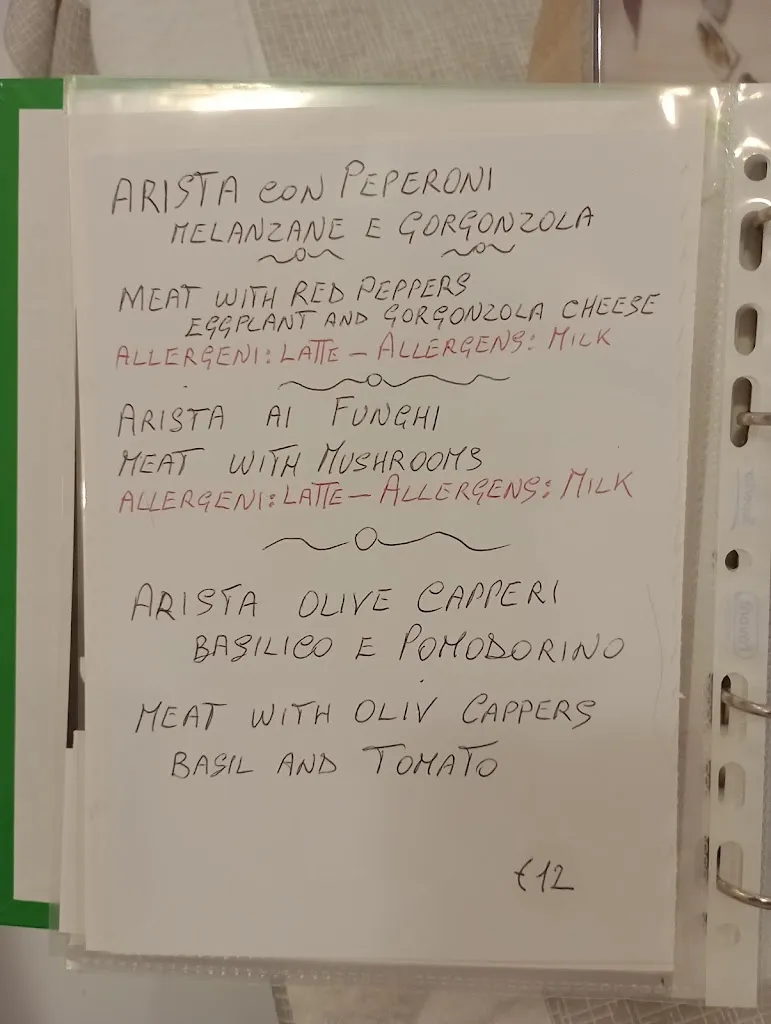 ARISTA CON PEPERONI
MELANZANE E GORGONZOLA
MEAT WITH RED PEPPERS
EGGPLANT AND GORGONZOLA CHEESE
ALLERGENI: LATTE – ALLERGENS: MILK
ARISTA AI FUNGHI
MEAT WITH MUSHROOMS
ALLERGENI: LATTE – ALLERGENS: MILK
ARISTA OLIVE CAPPERI
BASILICO E POMODORINO
MEAT WITH OLIV CAPPERS
BASIL AND TOMATO
€12